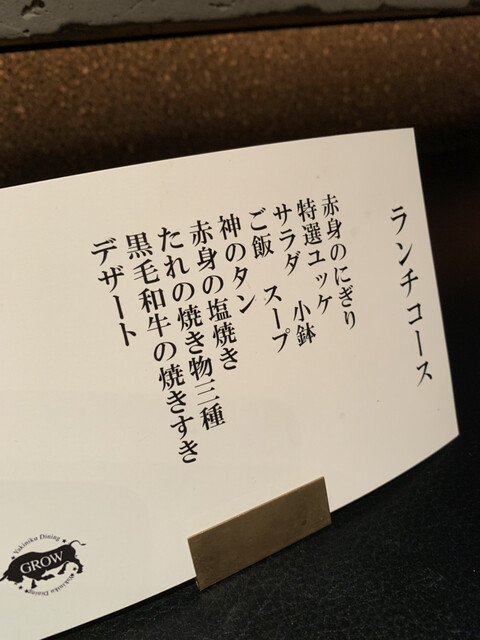 ランチコース
赤身のにぎり
特選ユッケ 小鉢
サラダ スープ
ご飯
神のタン
赤身の塩焼き
たれの焼き物三種
黒毛和牛の焼きすき
デザート
Yakiniku Dining
GROW
Yakiniku Dining